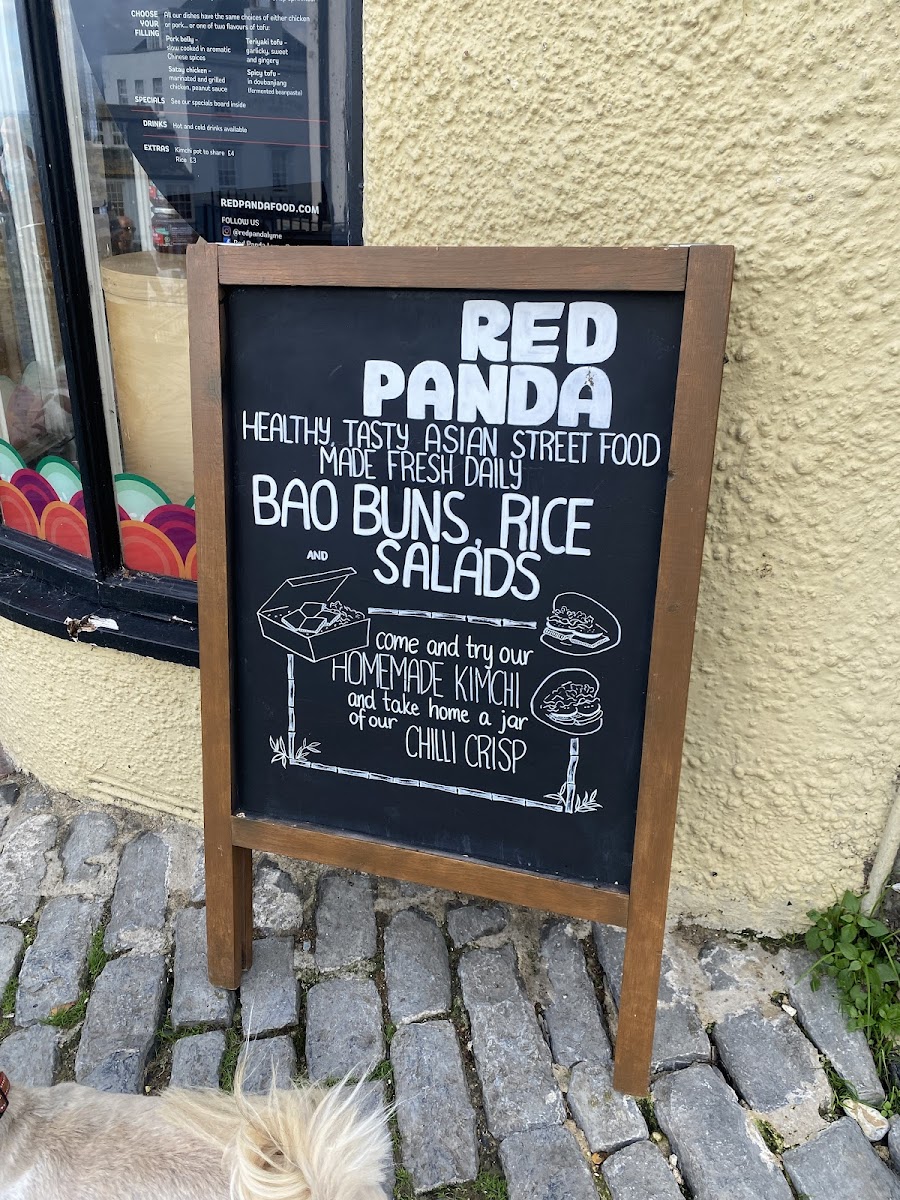 CHOOSE YOUR FILLING
All our dishes have the same choices of either chicken
or pork... or one of two flavours of tofu:
Pork belly -
slow cooked in aromatic
Chinese spices
Teriyaki tofu -
garlicky, sweet
and gingery
Satay chicken -
marinated and grilled
chicken, peanut sauce
Spicy tofu -
in doubanjiang
(fermented beanpaste)
SPECIALS See our specials board inside
DRINKS Hot and cold drinks available
EXTRAS Kimchi pot to share £4
Rice £3
REDPANDAFOOD.COM
FOLLOW US
@redpandalyme
RED
PANDA
HEALTHY, TASTY ASIAN STREET FOOD
MADE FRESH DAILY
BAO BUNS, RICE
AND SALADS
come and try our
HOMEMADE KIMCHI
and take home a jar
of our
CHILLI CRISP